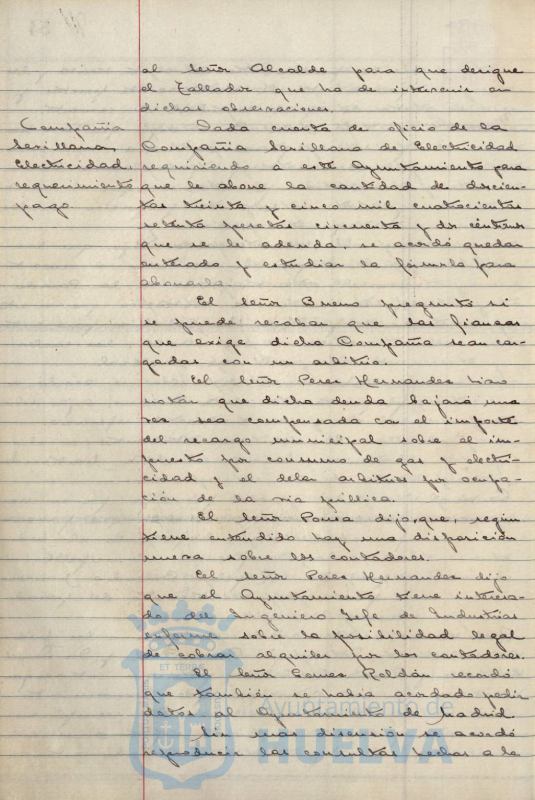 al señor Alcalde para que designe
el Tallador que ha de intervenir en
dichas observaciones.
Compañia
Sevillana
Electricidad.
requerimiento
pago.
Dada cuenta de oficio de la
Compañia Sevillana de Electricidad
requiriendo a este Ayuntamiento para
que le abone la cantidad de doscien-
tas treinta y cinco mil cuatrocientas
setenta pesetas cincuenta y dos céntimos
que se le adeuda, se acordó quedar
enterado y estudiar la fórmula para
abonarla.
El señor Bueno preguntó si
se puede recabar que las fianzas
que exige dicha Compañia sean car-
gadas con un arbitrio.
El señor Perez Hernandez hizo
notar que dicha deuda bajará una
vez sea compensada con el importe
del recargo municipal sobre el im-
puesto por consumo de gas y electri-
cidad y el del arbitrio por ocupa-
ción de la via pública.
El señor Ponsa dijo, que, según
tiene entendido hay una disposición
nueva sobre los contadores.
El señor Perez Hernandez dijo
que el Ayuntamiento tiene interesa-
do del Ingeniero Jefe de Industrias
informe sobre la posibilidad legal
de cobrar alquiler por los contadores.
El señor Gomez Roldán recordó
que también se habia acordado pedir
datos al Ayuntamiento de Madrid.
Sin mas discusión se acordó
reproducir las consultas hechas a la
Ayuntamiento de
HUELVA